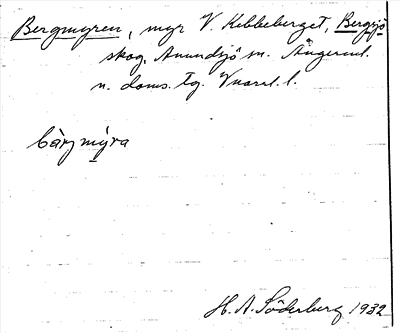 Bergmyren, myr V. Kibbeberget, Bergsjö
skog, Anundsjö sn. Ångerml.
n. doms. tg. Vnorrl. l.
bàrj myra
H. A. Söderberg 1932